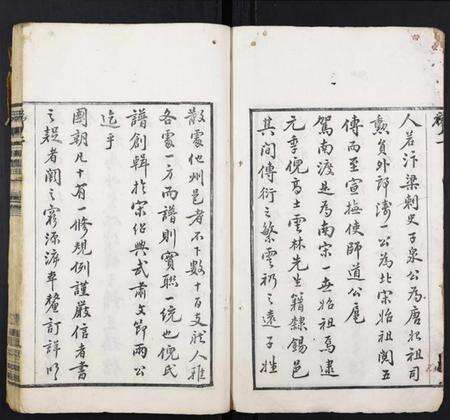 人若汴梁刺史子泉公為唐始祖司
勲員外評濤一公為北宋始祖閱五
傳而至宣撫使師道公扈
駕南渡是為南宋一世始祖焉逮
元季倪高士雲林先生籍隸錫邑
其間傳衍之繁雲礽之遠子姓
散處他州邑者不下數十百支然人雖
各處一方而譜則實職一統也倪氏
譜創輯於宋紹興武肅文節兩公
迄乎
國朝凡十有一修規例謹嚴信者書
之疑者闕之窮源溯本釐訂詳明